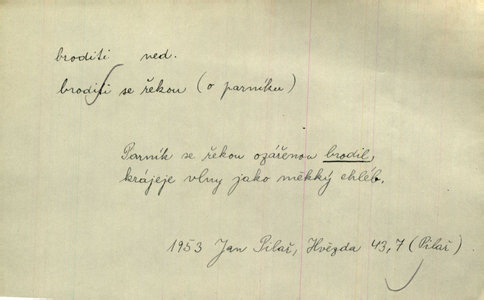 broditi ned.
broditi se řekou (o parníku)
Parník se řekou ozářenou brodil,
krájeje vlny jako měkký chléb.
1953 Jan Pilař, Hvězda 43,7 (Pilař)